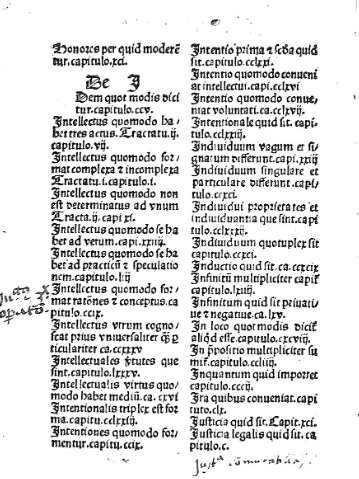 Honores per quid moderē
tur. capitulo. xci.
De I
Idem quot modis dici
tur. capitulo. ccv.
Intellectus quomodo ha/
bet tres actus. Tractatu. ij.
capitulo. vij.
Intellectus quomodo for/
mat complexa ⁊ incomplexa
Tractatu. i. capitulo. i.
Intellectus quomodo non
est determinatus ad vnum
Tracta. ij. capi. xi.
Intellectus quomodo se ha
bet ad verum. capi. xxiij.
Intellectus quomodo se ha
bet ad practicū ⁊ speculatio
nem. capitulo.
Intellectus quomodo for/
mat ratōnes ⁊ conceptus. ca
pitulo. ccix.
Intellectus vtrum cogno/
scat prius vniuersaliter q̄ꝫ p
ticulariter ca. ccxxxv
Intellectuales v̄tutes que
sint. capitulo. lxxxv.
Intellectualis virtus quo/
modo habet mediū. ca. cxvi
Intentionalis triplex est for
ma. capitu. cclxxiij.
Intentiones quomodo for/
mentur. capitu. ccix.
Intentio prima ⁊ scḋa quid
sit. capitulo. cclxxi.
Intentio quomodo conueni
at intellectui. capi. cclxvi
Intentio quomodo conue/
niat voluntati. ca. cclxvij.
Intentionale quid sit. capi/
tulo. cclxxiij.
Indiuiduum vagum et si/
gnatum differunt. capi. xxij
Indiuiduum singulare et
particulare differunt. capi/
tulo. ccxci.
Indiuidui proprietates et
indiuiduantia que sint. capi
tulo. cclxxxi.
Indiuiduum quotuplex sit
capitulo. ccxci.
Inductio quid sit. ca. ccxix
Infinitū multipliciter capit̄
capitulo. lxiij.
Infinitum quid sit priuati/
ue ⁊ negatiue. ca. lxv.
In loco quot modis dicit̄
aliqd̄ esse. capitulo. cxcviij.
In p̄positio multipliciter su
mit̄. capitulo. ccliij.
Inquantum quid importet
capitulo. cccij.
Ira quibus conueniat. capi
tulo. clx.
Justicia quid sit. Capit. xci.
Justicia legalis quid sit. ca
pitulo. c.